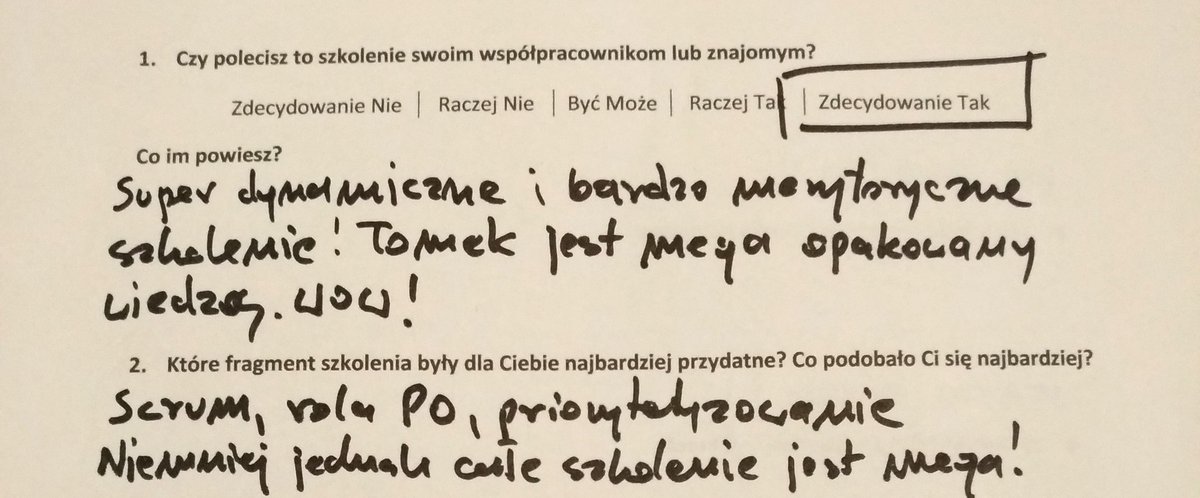 1. Czy polecisz to szkolenie swoim współpracownikom lub znajomym?
Zdecydowanie Nie | Raczej Nie | Być Może | Raczej Tak | Zdecydowanie Tak
Co im powiesz?
Super dynamiczne i bardzo merytoryczne
szkolenie! Tomek jest mega opakowany
wiedzą. WOW!
2. Które fragment szkolenia były dla Ciebie najbardziej przydatne? Co podobało Ci się najbardziej?
Scrum, rola PO, priorytetyzowanie
Niemniej jednak całe szkolenie jest mega!